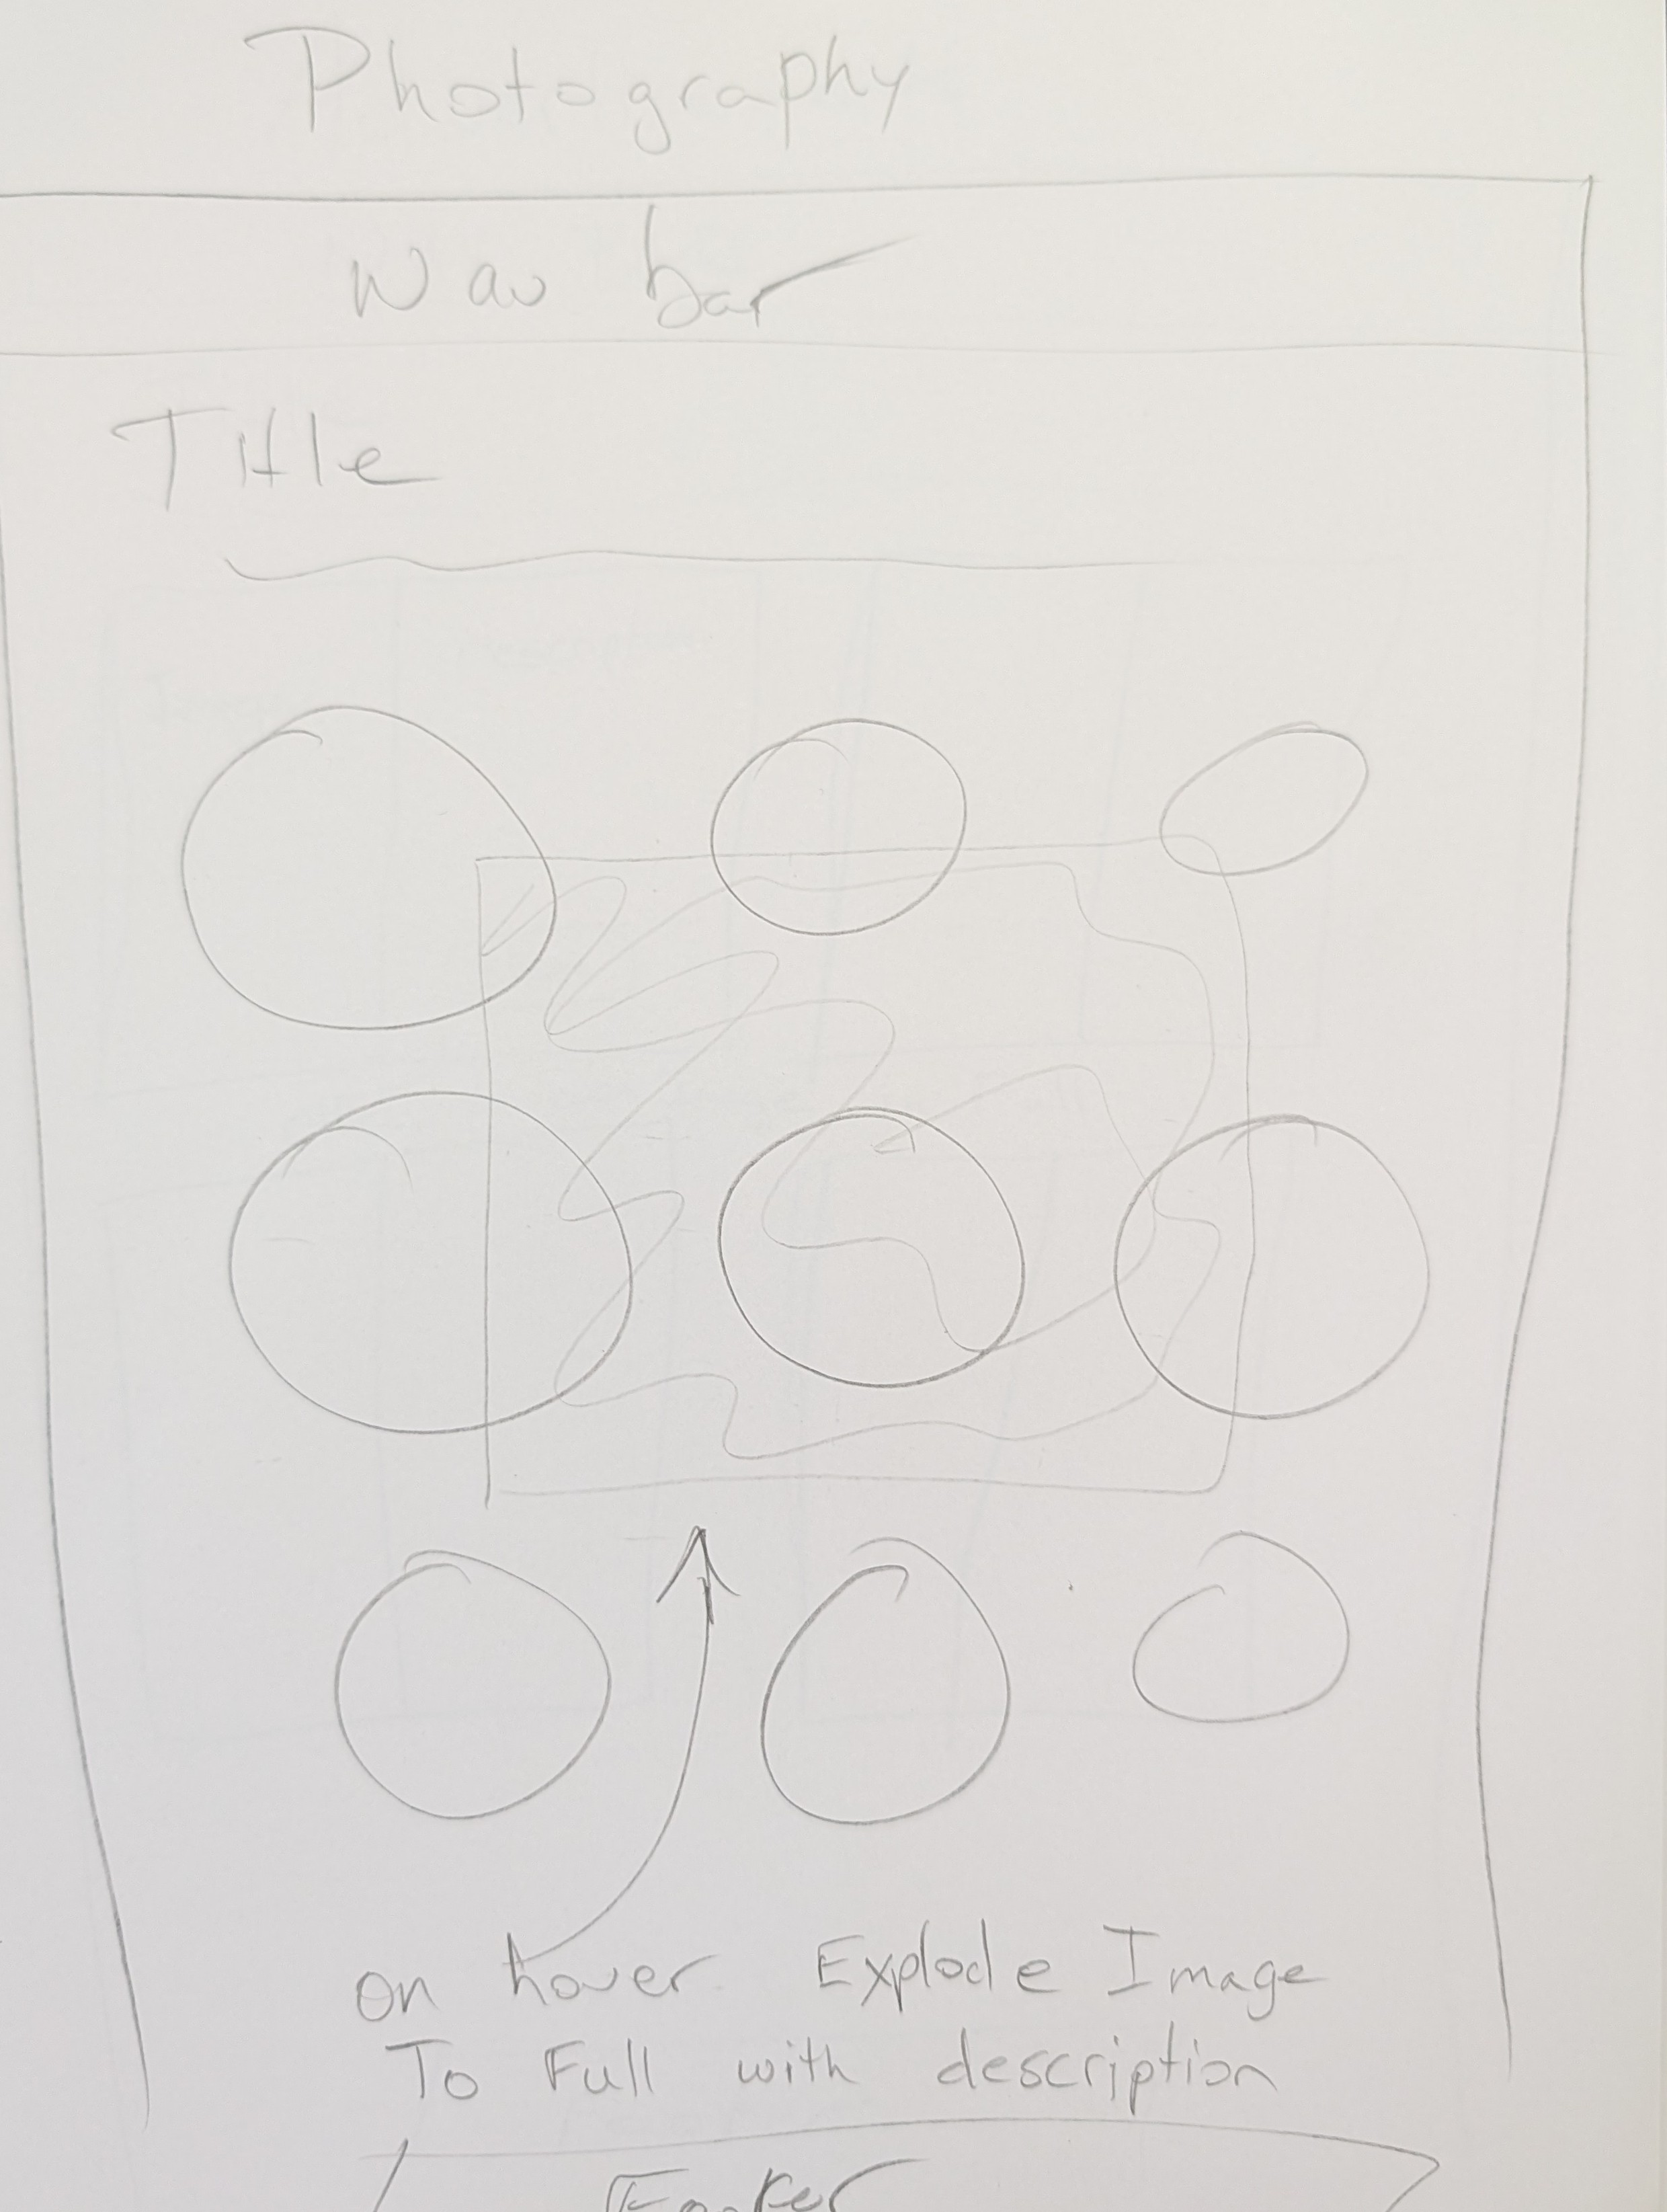 Photography
Nav bar
Title
on hover Explode Image
To Full with description
Footer